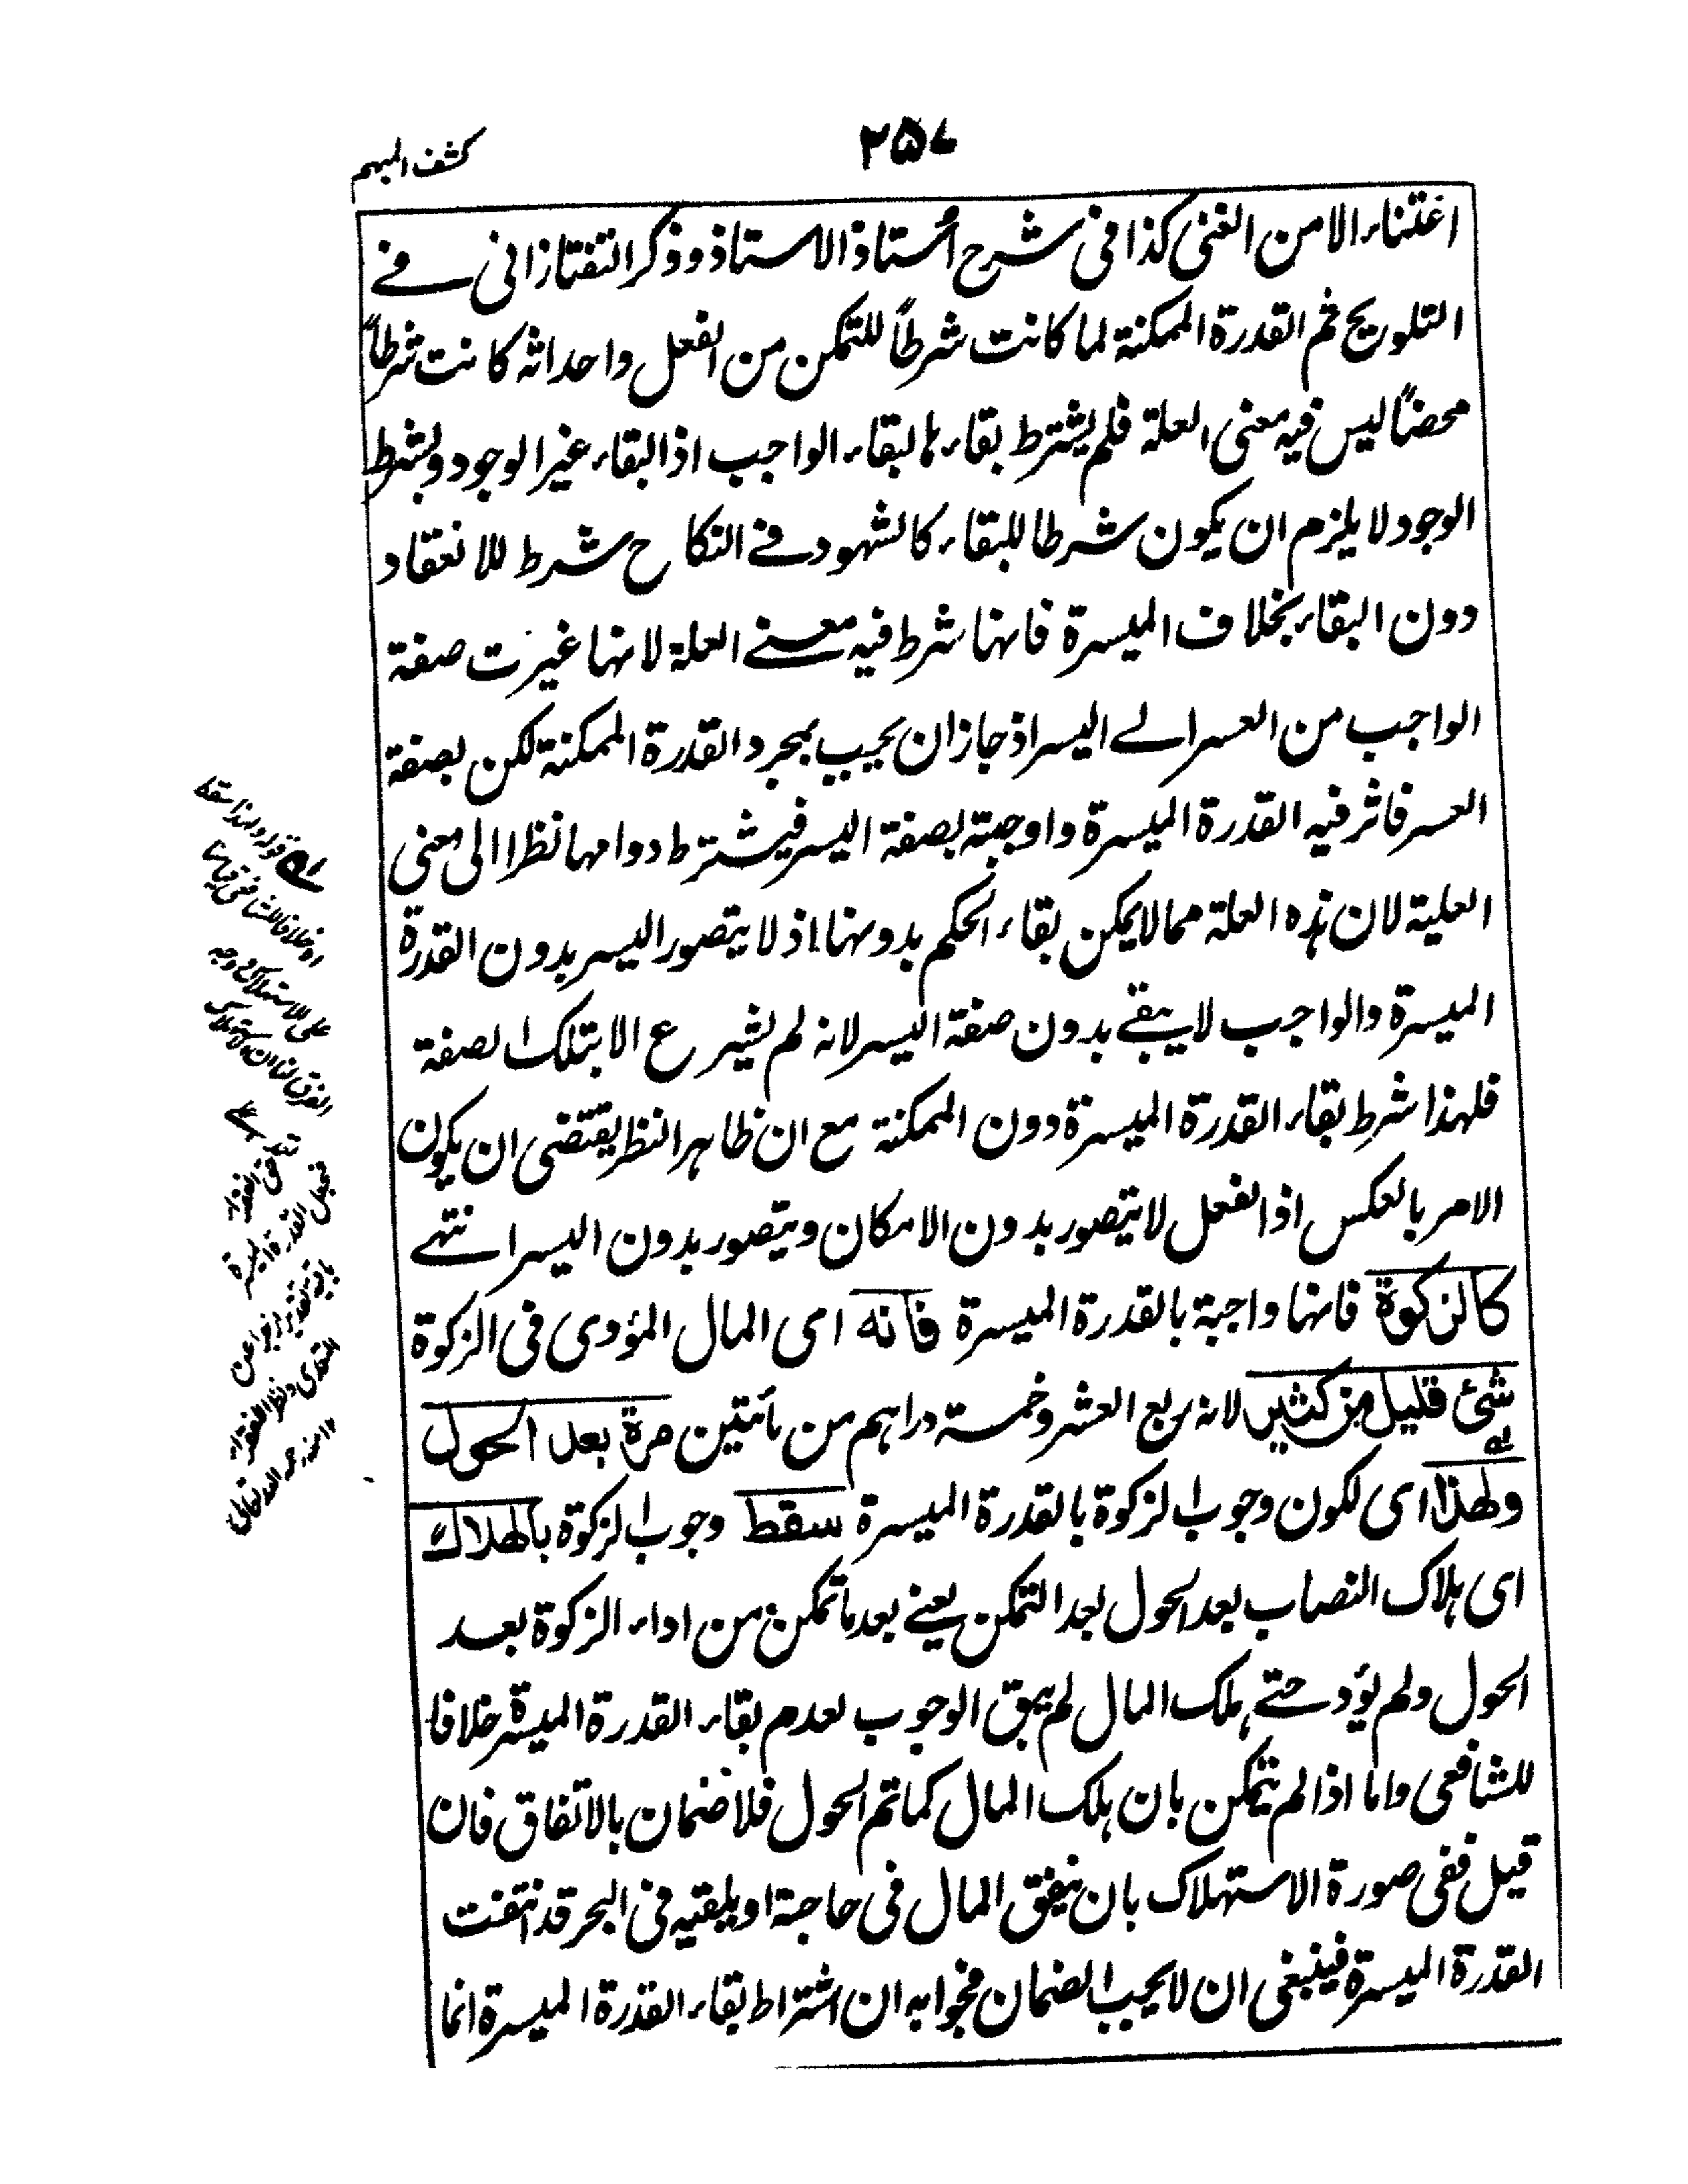 ٢٥٧
كشف المبهم
اغتناء الا من الغنى كذا فى شرح استاذ الاستاذ وذكر التفتازانى فے
التلويح ثم القدرة الممكنة لما كانت شرطاً للتمكن من الفعل واحداثه كانت شرطاً
محضاً ليس فيه معنى العلة فلم يشترط بقاءها لبقاء الواجب اذ البقاء غير الوجود وشرط
الوجود لا يلزم ان يكون شرطا للبقاء كالشهود فے النكاح شرط للانعقاد
دون البقاء بخلاف الميسرة فانها شرط فيه معنے العلة لانها غيرت صفة
الواجب من العسر الے اليسر اذ جاز ان يجب بمجرد القدرة الممكنة لكن بصفة
العسر فاثر فيه القدرة الميسرة واوجبته بصفة اليسر فيشترط دوامها نظرا الى معنى
العلية لان هذه العلة مما لا يمكن بقاء الحكم بدونها اذ لا يتصور اليسر بدون القدرة
الميسرة والواجب لا يبقے بدون صفة اليسر لانه لم يشرع الا بتلك الصفة
فلهذا شرط بقاء القدرة الميسرة دون الممكنة مع ان ظاهر النظر يقتضى ان يكون
الامر بالعكس اذ الفعل لا يتصور بدون الامكان ويتصور بدون اليسر انتهے
كالزكوة فانها واجبة بالقدرة الميسرة فانه اى المال المؤدى فى الزكوة
شئ قليل من كثير لانه ربع العشر وخمسة دراهم من مأتين مرة بعد الحول
ولهذا اى لكون وجوب الزكوة بالقدرة الميسرة سقط وجوب الزكوة بالهلاك
اى هلاك النصاب بعد الحول بعد التمكن يعنے بعد ما تمكن من اداء الزكوة بعد
الحول ولم يؤد حتے هلك المال لم يبق الوجوب لعدم بقاء القدرة الميسرة خلافا
للشافعى واما اذا لم يتمكن بان هلك المال كما تم الحول فلا ضمان بالاتفاق فان
قيل ففى صورة الاستهلاك بان ينفق المال فى حاجة او يلقيه فى البحر قد انتفت
القدرة الميسرة فينبغى ان لا يجب الضمان فجوابه ان اشتراط بقاء القدرة الميسرة انما
قوله ولهذا سقط
على الاستهلاك وجه
الفرق ان الاستهلاك
تعد